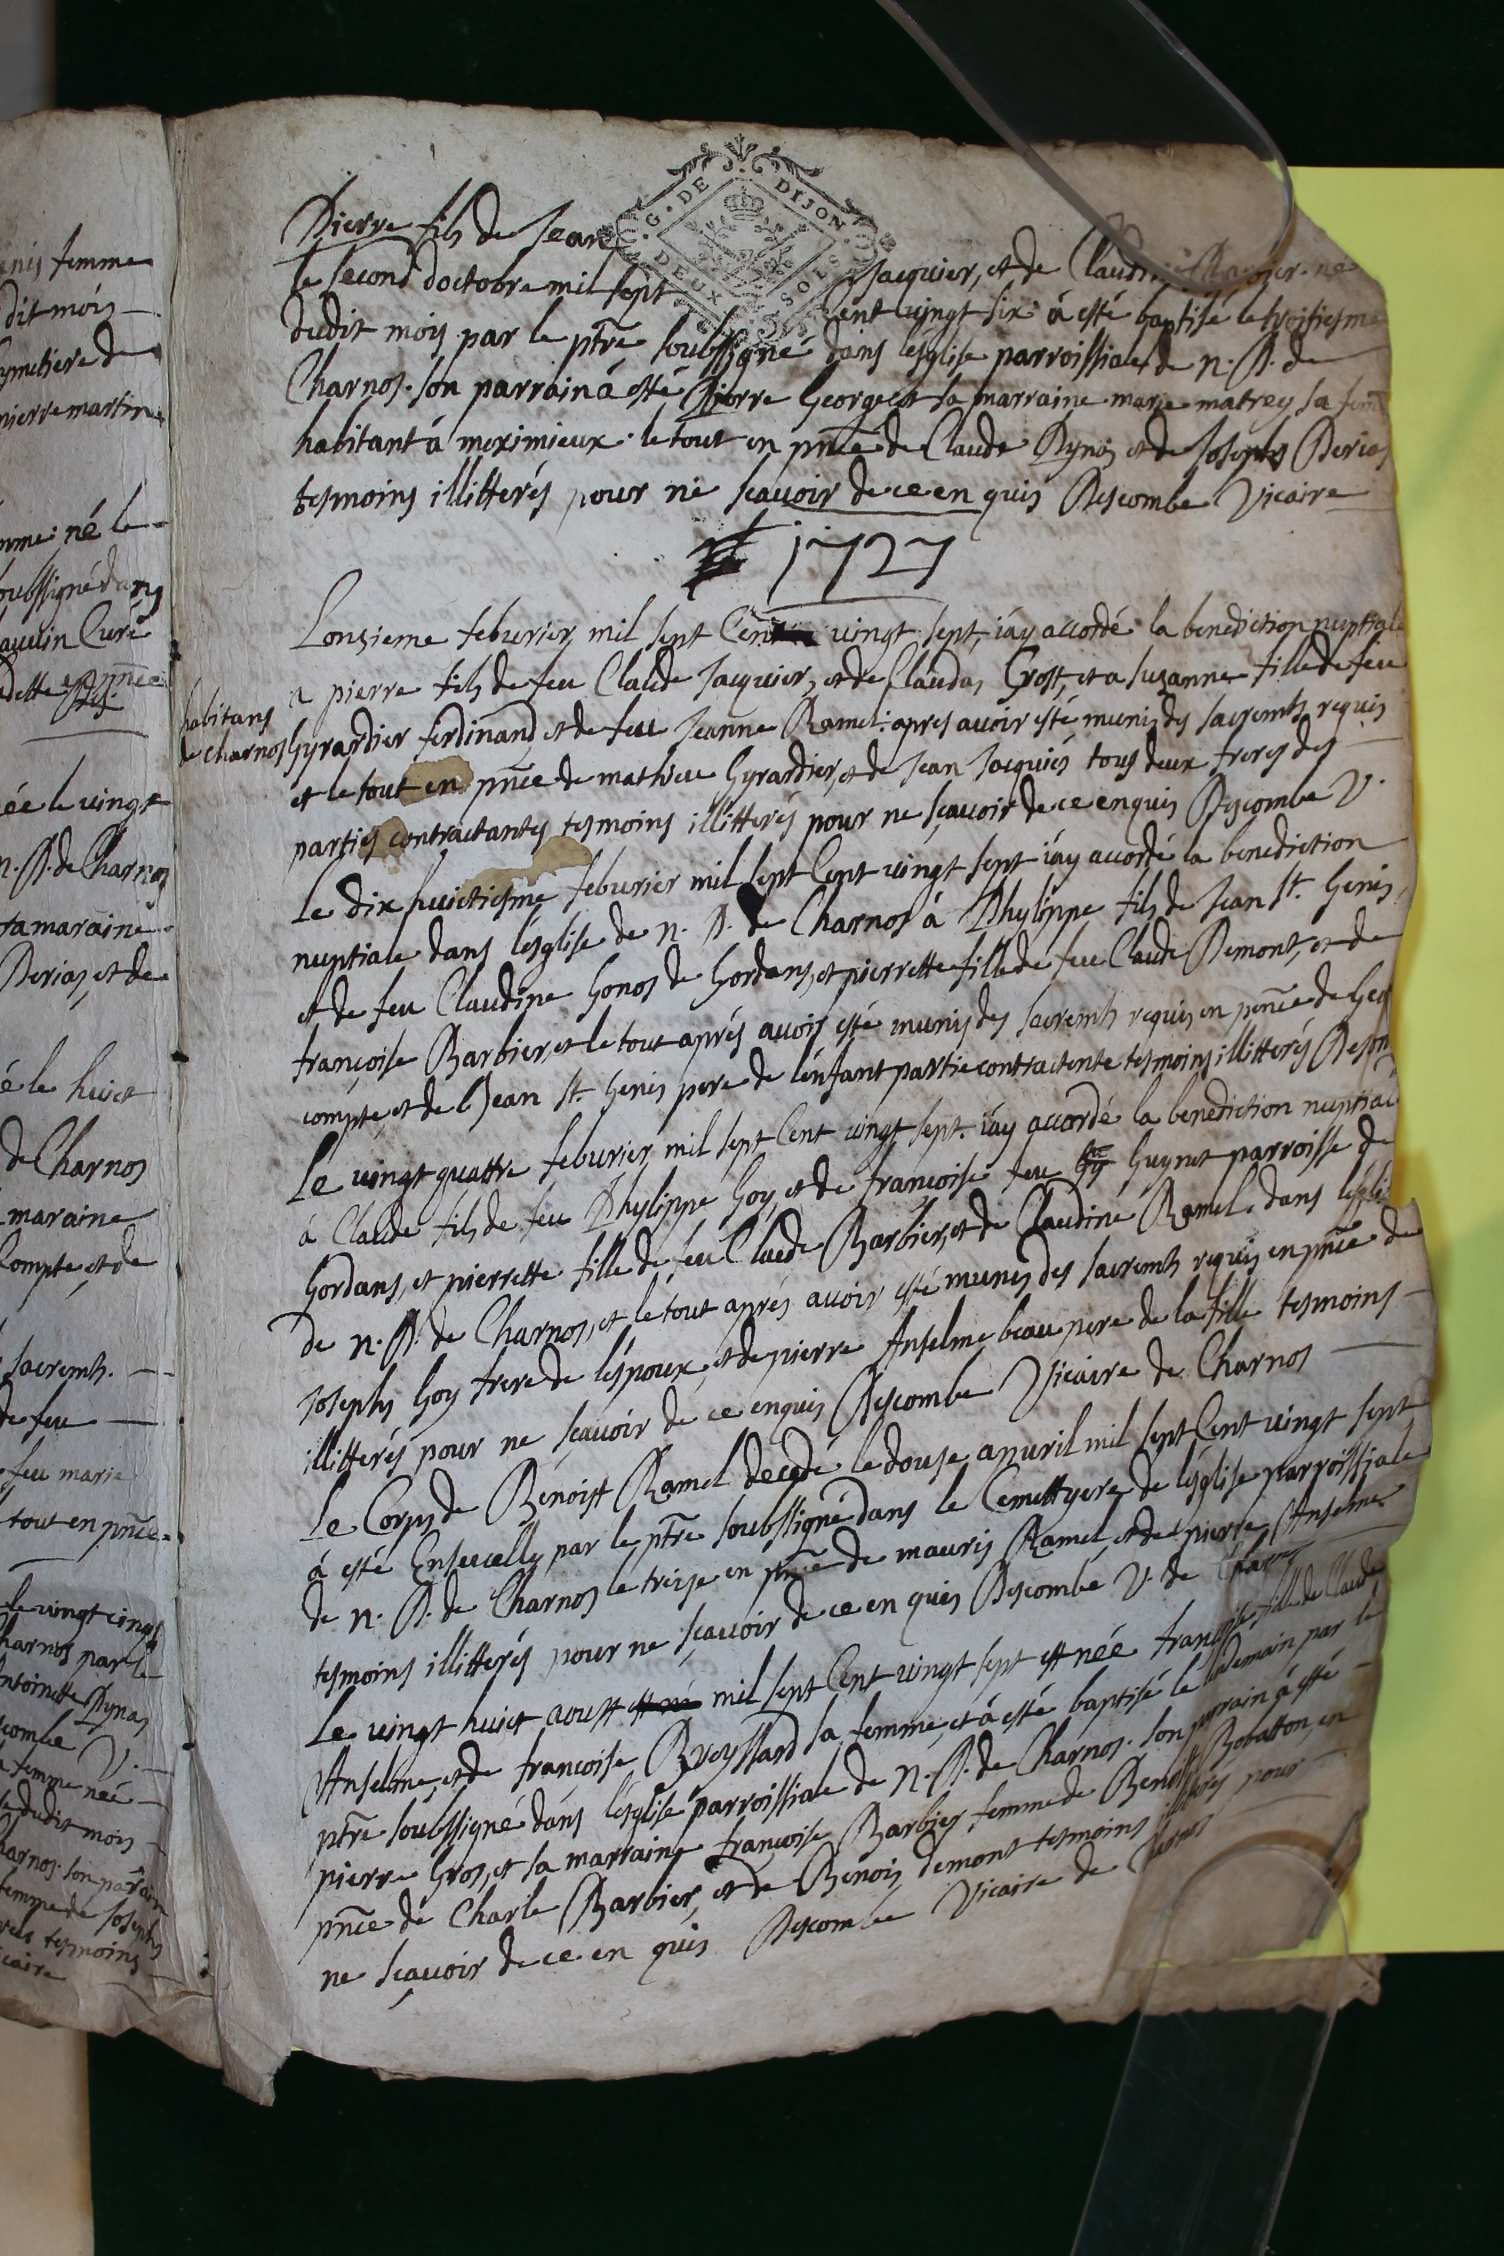 enis femme
dit mois
cymetiere de
pierre martin
femme né le
soubssigné dans
Curé
en pnce
née le vingt
n. D. de Charnos
sa maraine
Derias, et de
né le huict
de Charnos
maraine
Compte, et de
sacremts.
de feu
feu marie
tout en pnce
le vingt cinq
Charnos par le
Antoinette Dynas
Descombe V.
femme née
dudit mois
Charnos. son parain
femme de Joseph
tesmoins
vicaire
G. DE DIJON
DEUX SOLS
Pierre fils de Jean Jacquier, et de Claudine Barbier né
le second doctobre mil sept cent vingt six à esté baptisé le troisiesme
dudit mois par le ptre soubssigné dans lesglise parroissiale de n. D. de
Charnos. son parrain à esté Pierre George et sa marraine marie matrey sa fem
habitant à meximieux. le tout en pnce de Claude Dynas et de Joseph Derias
tesmoins illitterés pour ne scavoir de ce en quis Descombe Vicaire
1727
Lonzieme feburier mil sept Cent vingt sept, iay accordé la benediction nuptiale
a pierre fils de feu Claude Jacquier, et de Claudas Grost, et a Suzanne fille de feu
habitans
de Charnos
Gyrardier ferdinand, et de feu Jeanne Ramel: apres avoir esté munis des sacremts requis
et le tout en pnce de mathieu Gyrardier, et de Jean Jacquier tous deux freres des
parties contractantes tesmoins illitterés pour ne sçavoir de ce enquis Descombe V.
Le dix huictiesme feburier mil sept Cent vingt sept iay accordé la benediction
nuptiale dans lesglise de n. D. de Charnos à Phylippe fils de Jean St. Genis,
et de feu Claudine Gonos de Gordans, et pierrette fille de feu Claude Demont, et de
françoise Barbier, et le tout aprés avoir esté munis des sacremts requis en pence de
compte, et de Jean St. Genis pere de lenfant partie contractente tesmoins illitterés
Le vingt quattre feburier mil sept Cent vingt sept. iay accordé la benediction nuptiale
à Claude fils de feu Phylippe Goy, et de françoise feu Guynet parroisse de
Gordans, et pierrette fille de feu Claude Barbier, et de Claudine Ramel. dans lesglise
de n. D. de Charnos, et le tout aprés avoir esté munis des sacremts requis en pnce de
Joseph Goy frere de lespoux, et de pierre Anselme beau pere de la fille tesmoins
illitterés pour ne sçavoir de ce enquis Descombe Vicaire de Charnos
Le Corps de Benoist Ramel décedé le douse apuril mil sept Cent vingt sept
à esté Enseuelly par le ptre soubssigné dans le Cemettyere de lesglise parroissiale
de n. D. de Charnos le treize en pnce de mauris Ramel, et de pierre Anselme
tesmoins illitterés pour ne sçavoir de ce en quis Descombe V. de Charnos
Le vingt huict aoust mil sept Cent vingt sept est née françoise fille de Claude
Anselme, et de françoise Breyssard sa femme, et à esté baptisé le lendemain par le
ptre soubssigné dans lesglise parroissiale de N. D. de Charnos. son parrain à esté
pierre Gros, et sa marraine françoise Barbier femme de Benoist Bobatton, en
pnce de Charle Barbier, et de Benois demont tesmoins illiterés pour
ne sçavoir de ce en quis Descombe Vicaire de Charnos